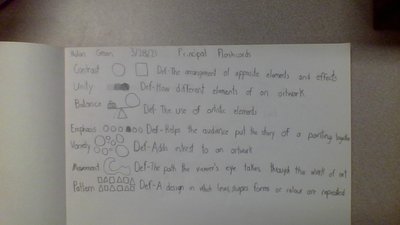 Green Principal Flashcards
Contrast Def-The arrangement of opposite elements and effects
Unity Def-How different elements of an artwork
Balance Def-The use of artistic elements
Emphasis Def-Helps the audience put the story of a painting together
Variety Def-Adds intrest to an artwork
Movement Def-The path the viewer's eye takes through the work of art
Pattern Def-A design in which lines, shapes forms or colour are repeated